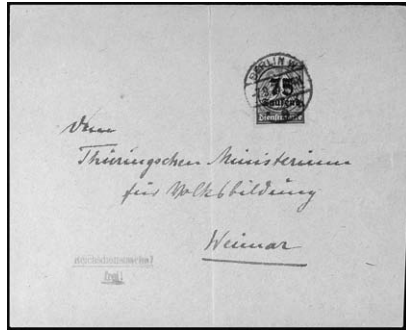 BERLIN W
75
Tausend
Dienstmarke
Dem
Thüringschen Ministerium
für Volksbildung
Weimar